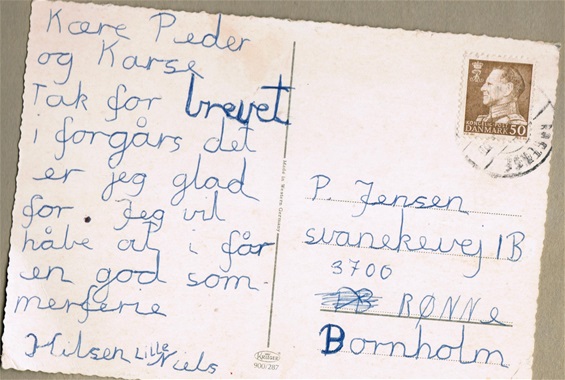 Kære Peder
og Karse
Tak for brevet
i forgårs det
er jeg glad
for Jeg vil
håbe at i får
en god som-
merferie
Hilsen Lille Niels
P. Jensen
svanekevej 1B
3700
RØNNe
Bornholm
DANMARK 50
Made in Western Germany
Krüger
900/287